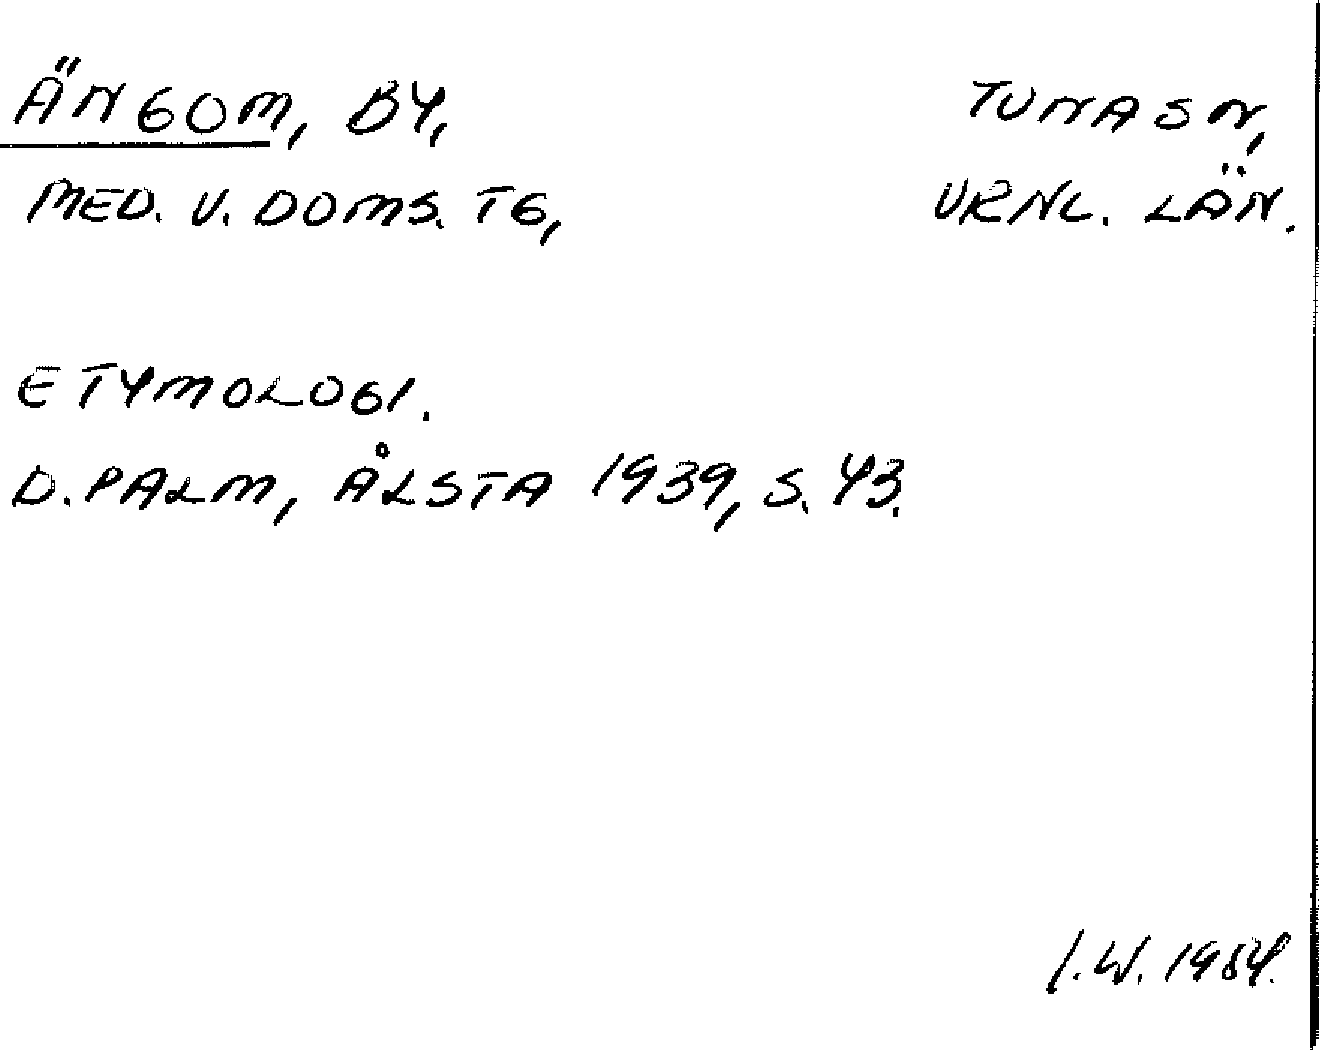 ÄNGOM, BY, TUNA SN,
MED. V. DOMS. TG, VRNL. LÄN.
ETYMOLOGI.
D. PALM, ÅLSTA 1939, S. 43.
I. W. 1984.